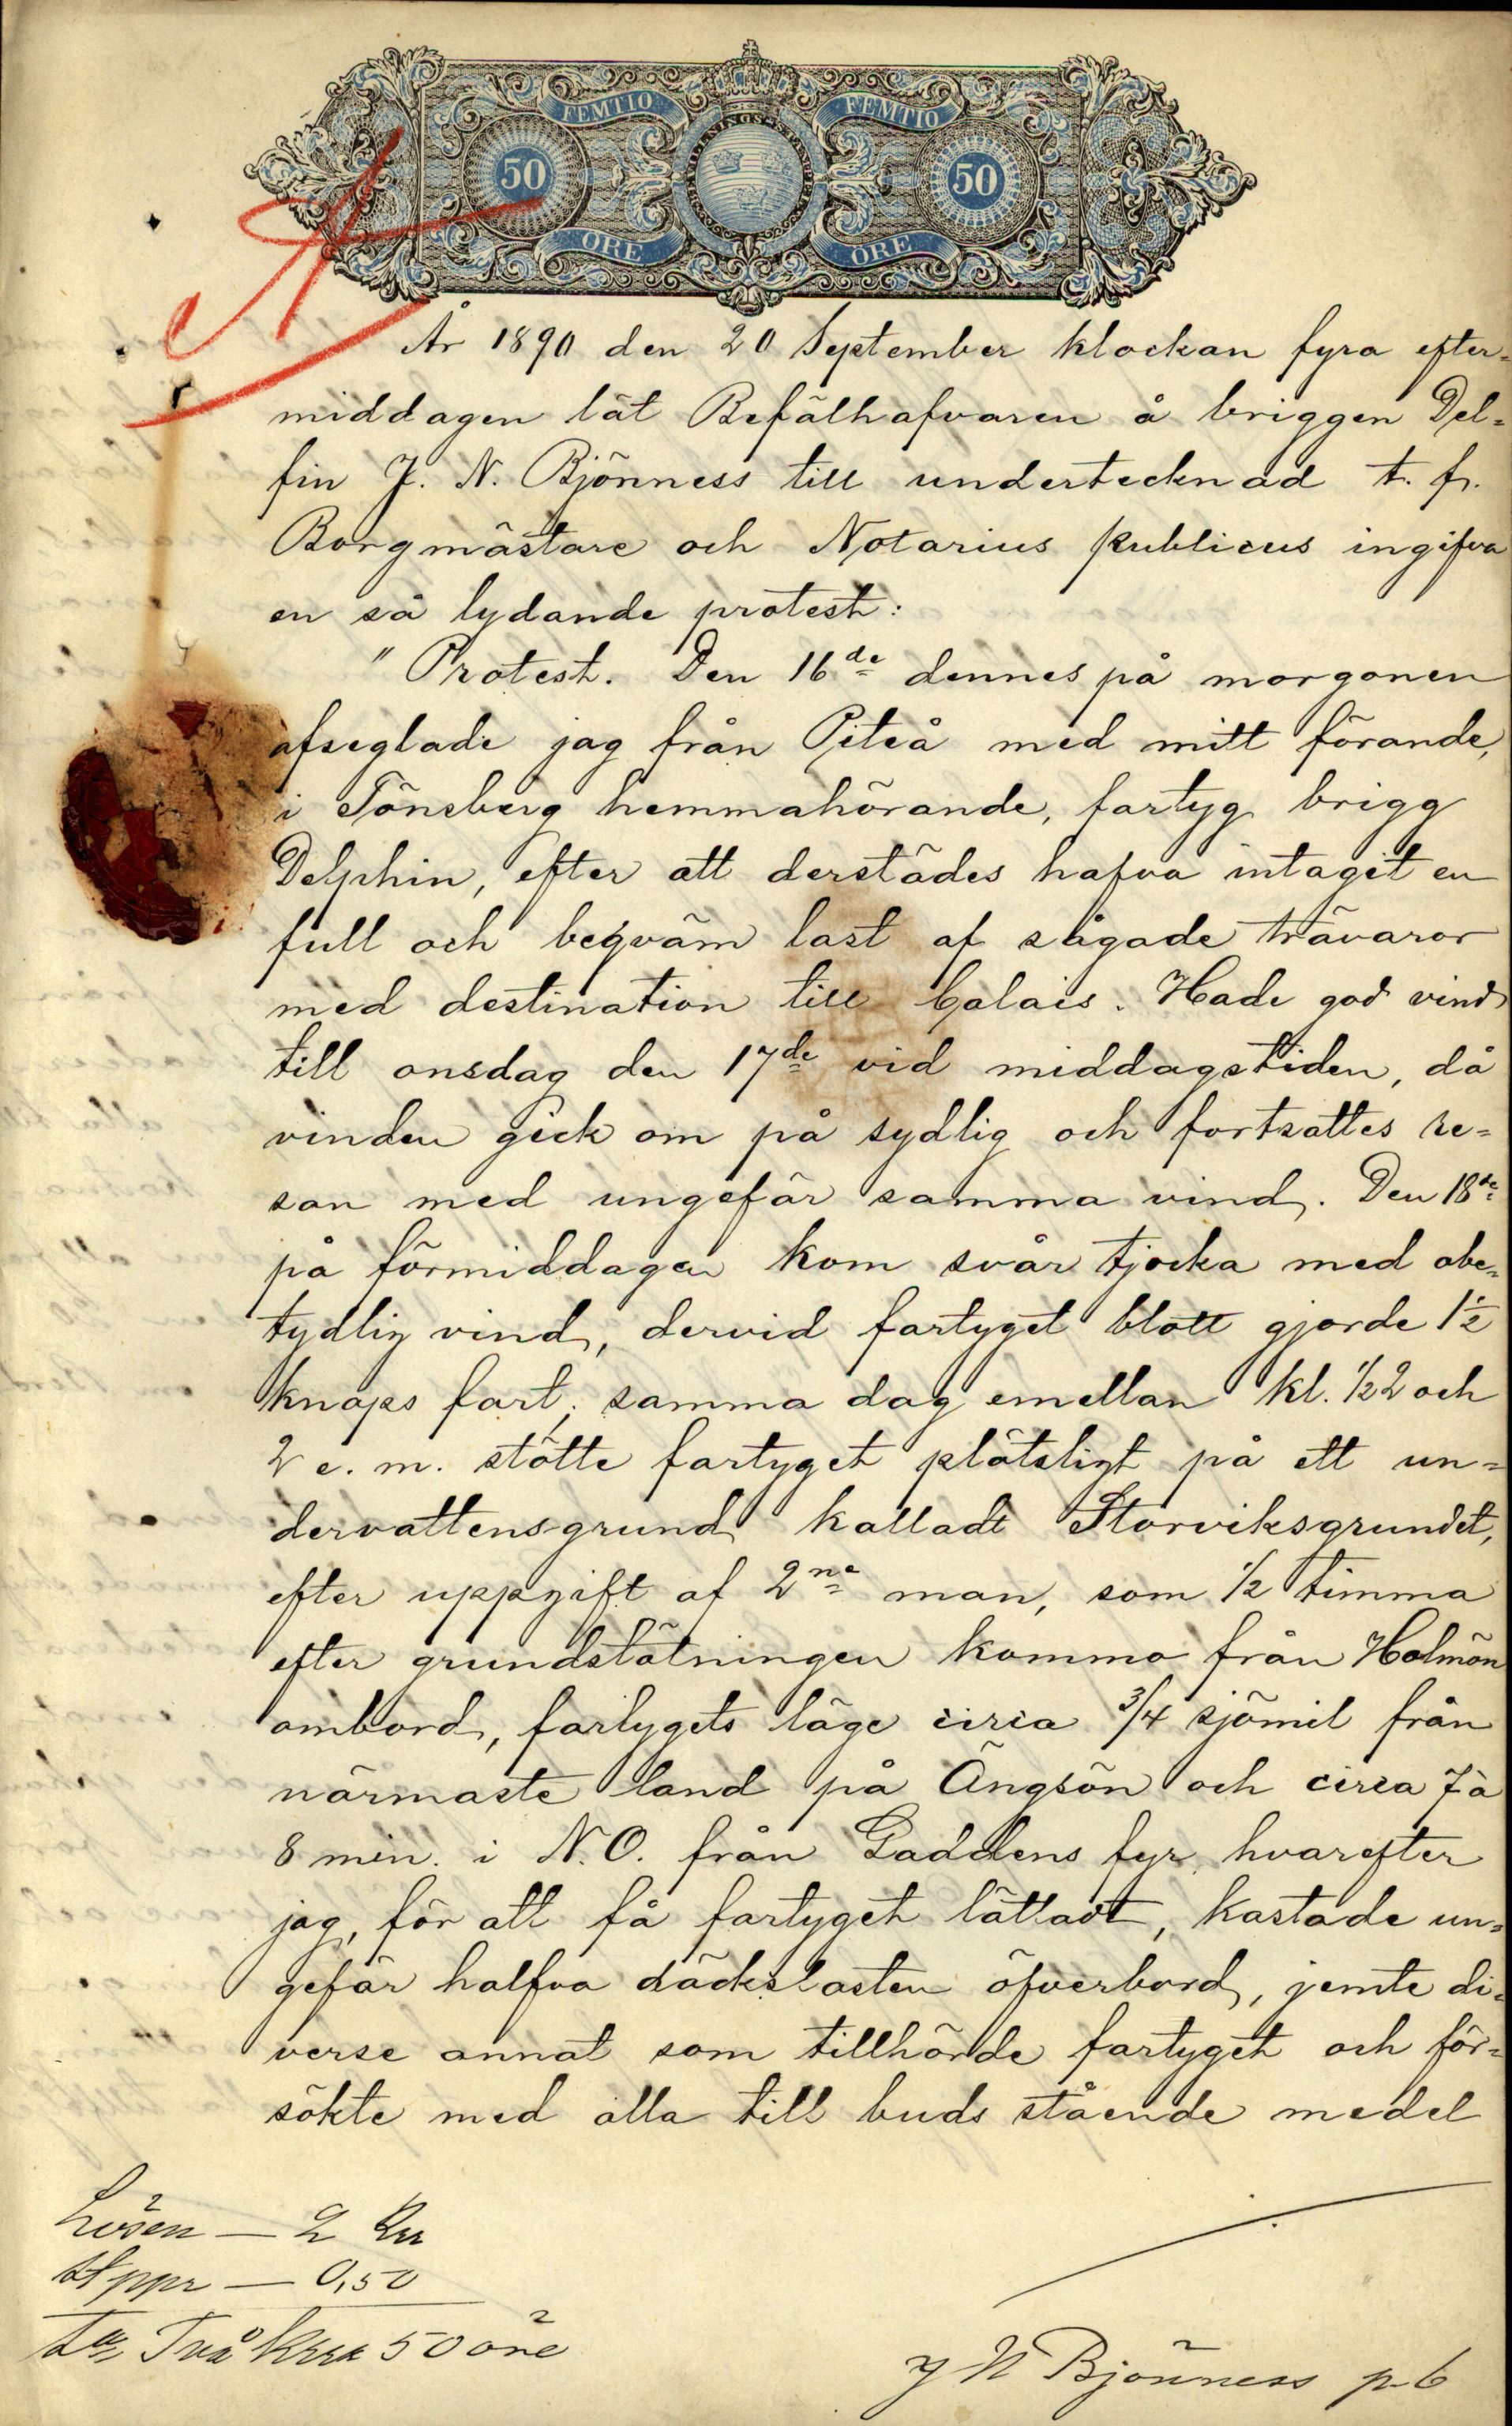 FEMTIO FEMTIO
50 50
ÖRE ÖRE
År 1890 den 20 September klockan fyra efter=
middagen lät Befälhafvaren å briggen Del=
fin J. N. Bjönness till undertecknad t. f.
Borgmästare och Notarius Publicus ingifva
en så lydande protest:
"Protest. Den 16de dennes på morgonen
afseglade jag från Piteå med mitt förande,
i Tönsberg hemmahörande, fartyg brigg
Delphin, efter att derstädes hafva intagit en
full och beqväm last af sågade trävaror
med destination till Calais. Hade god vind
till onsdag den 17de vid middagstiden, då
vinden gick om på sydlig och fortsattes re=
san med ungefär samma vind. Den 18de
på förmiddagen kom svår tjocka med obe=
tydlig vind, dervid fartyget blott gjorde 1½
knops fart; samma dag emellan kl. ½2 och
2 e. m. stötte fartyget plötsligt på ett un=
dervattensgrund kalladt Storviksgrundet,
efter uppgift af 2ne man, som ½ timma
efter grundstötningen kommo från Holmön
ombord, fartygets läge circa 3/4 sjömil från
närmaste land på Ängsön och circa 7 à
8 min. i N.O. från Gaddens fyr, hvarefter
jag, för att få fartyget lättadt, kastade un=
gefär halfva däckslasten öfverbord, jemte di=
verse annat som tillhörde fartyget och för=
sökte med alla till buds stående medel
Lösen — 2 Kr
Stppr — 0,50
Två Kr 50 öre
J N Bjönness